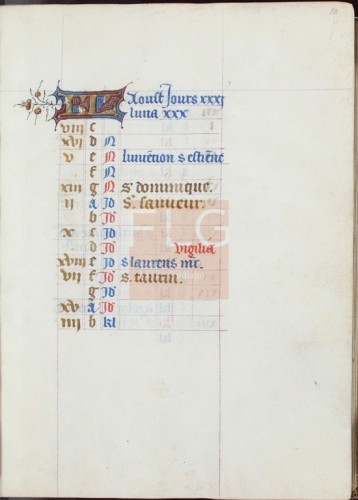 KL Aoust Jours xxxi
luna xxx
viii c
xvi d N
v e N Invention s estiene
f N
xiii g N S. dominique.
ii a Id S. sauveur.
b Id
x c Id
d Id vigilia
xviii e Id s laurens mr.
vii f Id s. taurin.
g Id
xv a Id
iiii b kl
FLG